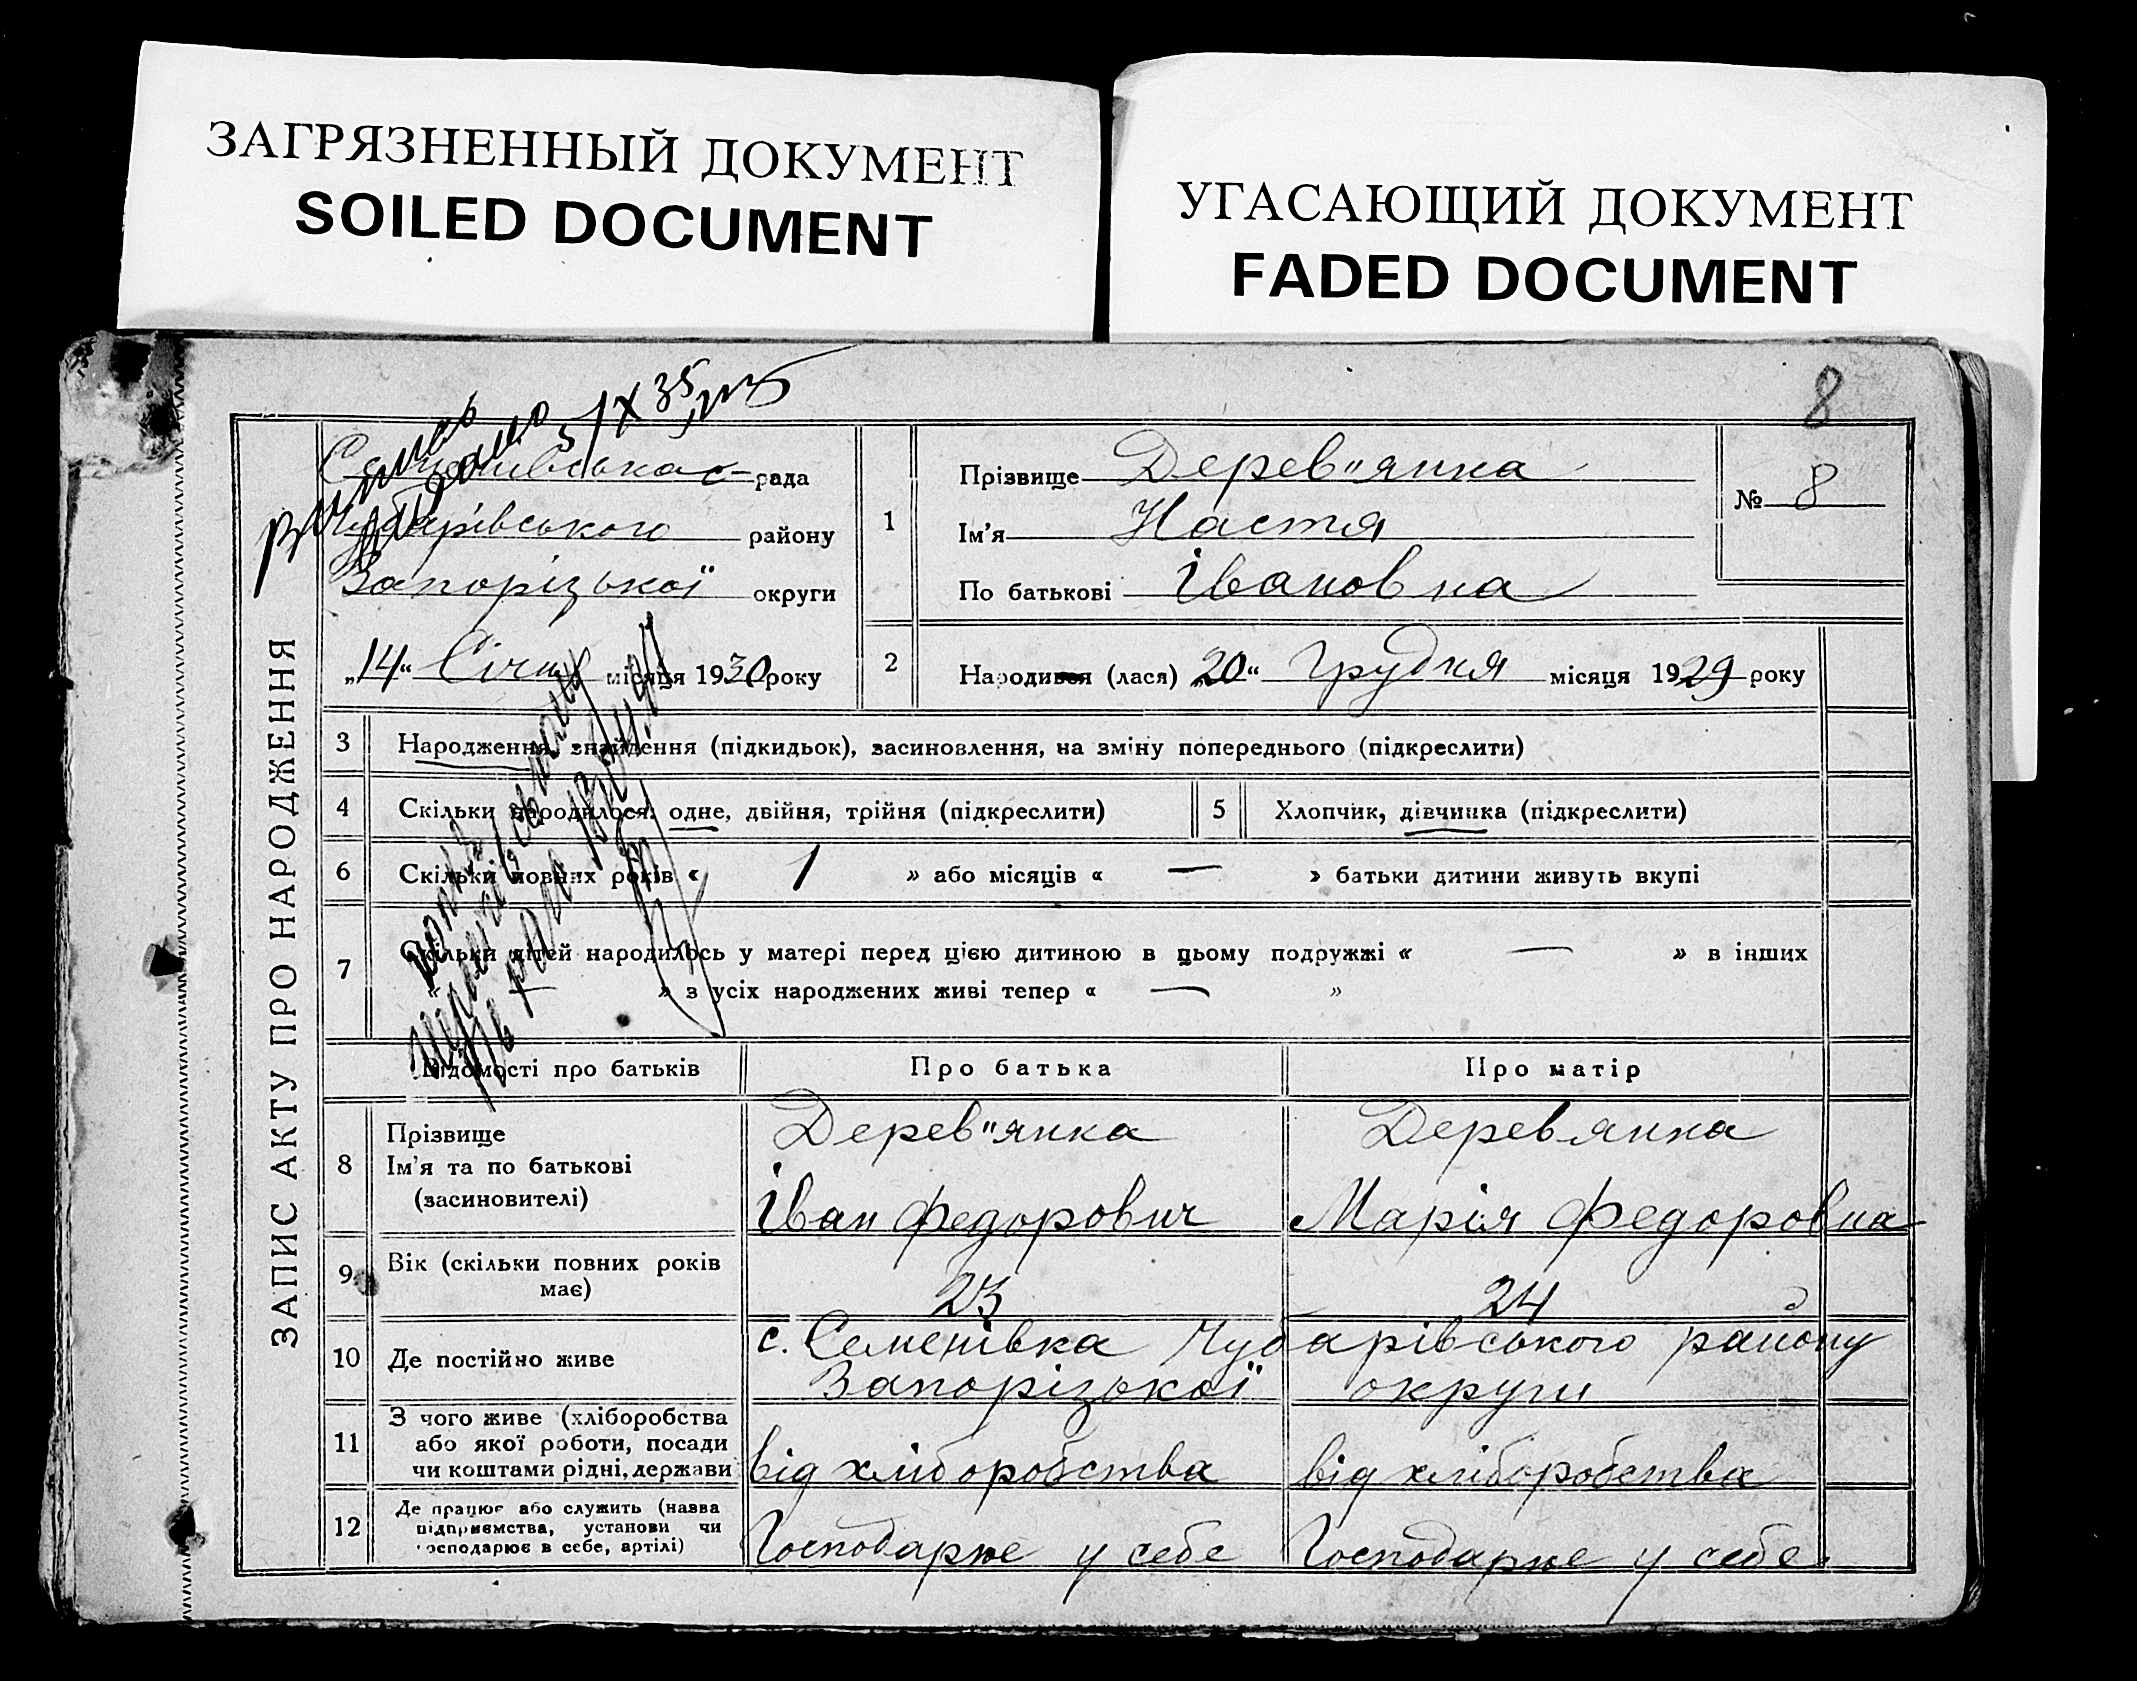 ЗАГРЯЗНЕННЫЙ ДОКУМЕНТ
SOILED DOCUMENT
УГАСАЮЩИЙ ДОКУМЕНТ
FADED DOCUMENT
8
1 X 35
ЗАПИС АКТУ ПРО НАРОДЖЕННЯ
с-рада
Чубарівського району
Запорізької округи
„14“ Січня місяця 1930 року
1
Прізвище Дерев"янка
Ім'я Настя
По батькові Івановна
№ 8
2
Народився (лася) „20“ Грудня місяця 1929 року
3 Народження, знайдення (підкидьок), засиновлення, на зміну попереднього (підкреслити)
4 Скільки народилося: одне, двійня, трійня (підкреслити)
5 Хлопчик, дівчинка (підкреслити)
6 Скільки повних років « 1 » або місяців « — » батьки дитини живуть вкупі
7 Скільки дітей народилось у матері перед цією дитиною в цьому подружжі « — » в інших
« — » з усіх народжених живі тепер « — »
Відомості про батьків Про батька Про матір
8 Прізвище
Ім'я та по батькові
(засиновителі)
Дерев"янка
Іван Федорович
Деревянка
Марія Федоровна
9 Вік (скільки повних років
має)
23 24
10 Де постійно живе
с. Семенівка Чубарівського району
Запорізької округи
11 З чого живе (хліборобства
або якої роботи, посади
чи коштами рідні, держави
від хліборобства від хліборобства
12 Де працює або служить (назва
підприємства, установи чи
господарює в себе, артілі)
Господарює у себе Господарює у себе